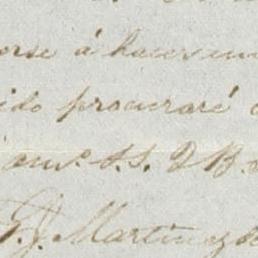 orse á hacer
ido procuraré
am.º S. S. Q B.
G. J. Martinez